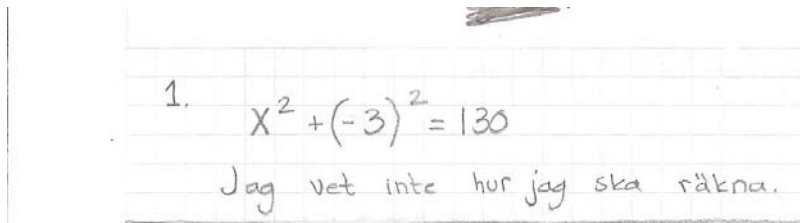 1.
x² + (-3)² = 130
Jag vet inte hur jag ska räkna.